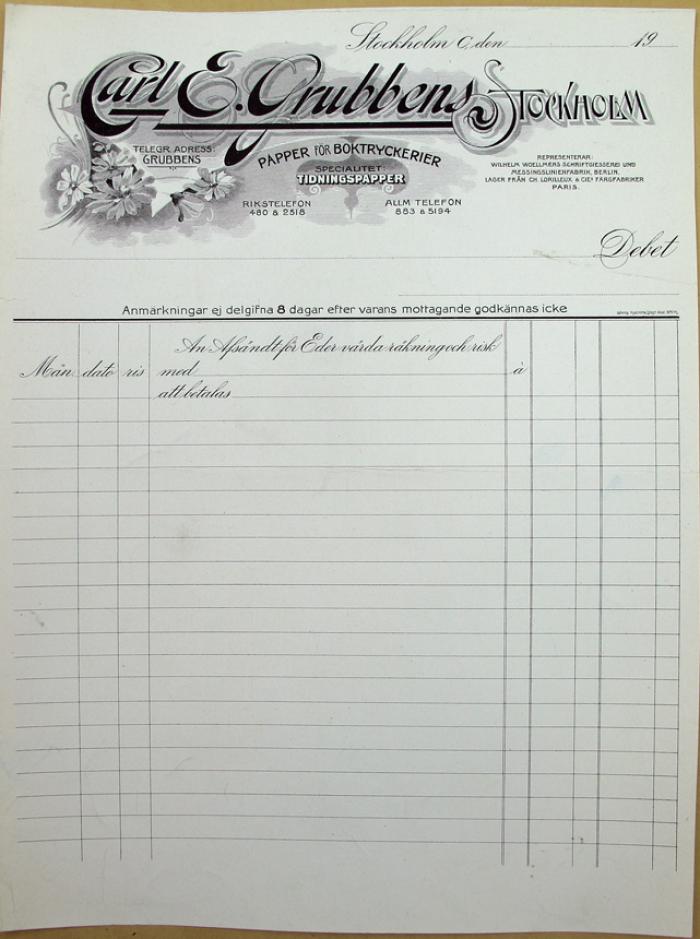 Stockholm C, den 19
Carl E. Grubbens, STOCKHOLM
TELEGR. ADRESS:
GRUBBENS
PAPPER FÖR BOKTRYCKERIER
SPECIALITET:
TIDNINGSPAPPER
RIKSTELEFON
480 & 2518
ALLM TELEFON
883 & 5194
REPRESENTERAR:
WILHELM WOELLMERS SCHRIFTGIESSEREI UND
MESSINGLINIENFABRIK, BERLIN.
LAGER FRÅN CH. LORILLEUX & CIES FÄRGFABRIKER
PARIS.
Debet
Anmärkningar ej delgifna 8 dagar efter varans mottagande godkännas icke
An Afsändt för Eder värda räkning och risk
Mån dato ris med à
att betalas